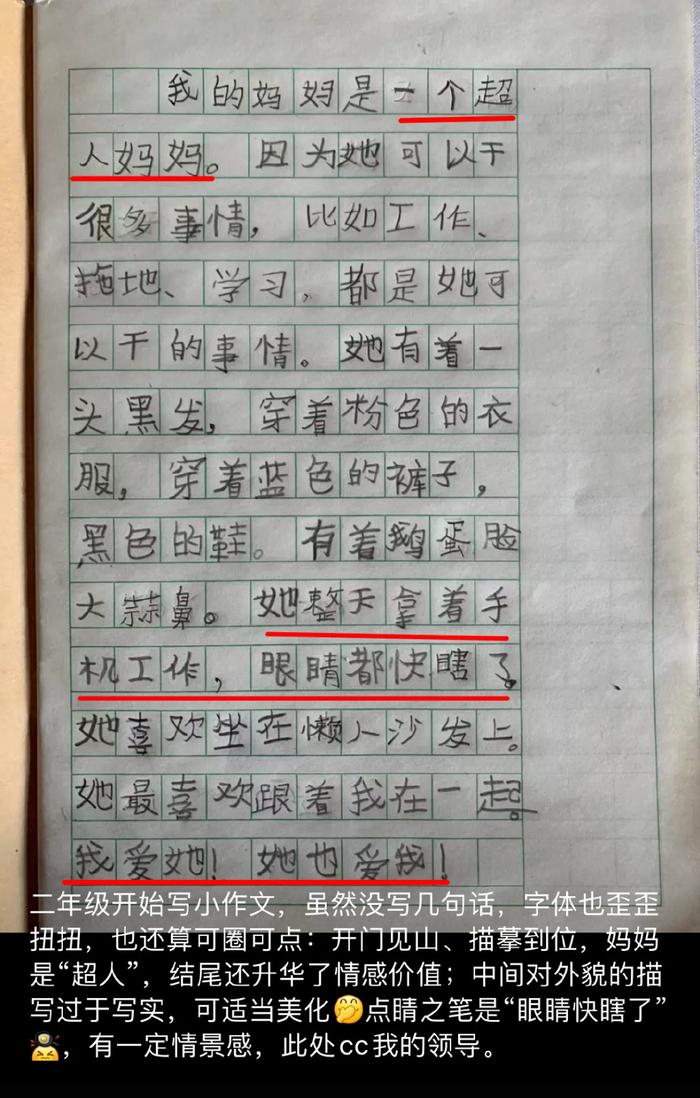 我的妈妈是一个超
人妈妈。因为她可以干
很多事情，比如工作、
拖地、学习，都是她可
以干的事情。她有着一
头黑发，穿着粉色的衣
服，穿着蓝色的裤子，
黑色的鞋。有着鹅蛋脸
大蒜鼻。她整天拿着手
机工作，眼睛都快瞎了。
她喜欢坐在懒人沙发上。
她最喜欢跟着我在一起。
我爱她！她也爱我！
二年级开始写小作文，虽然没写几句话，字体也歪歪
扭扭，也还算可圈可点：开门见山、描摹到位，妈妈
是“超人”，结尾还升华了情感价值；中间对外貌的描
写过于写实，可适当美化🤭点睛之笔是“眼睛快瞎了”
，有一定情景感，此处cc我的领导。